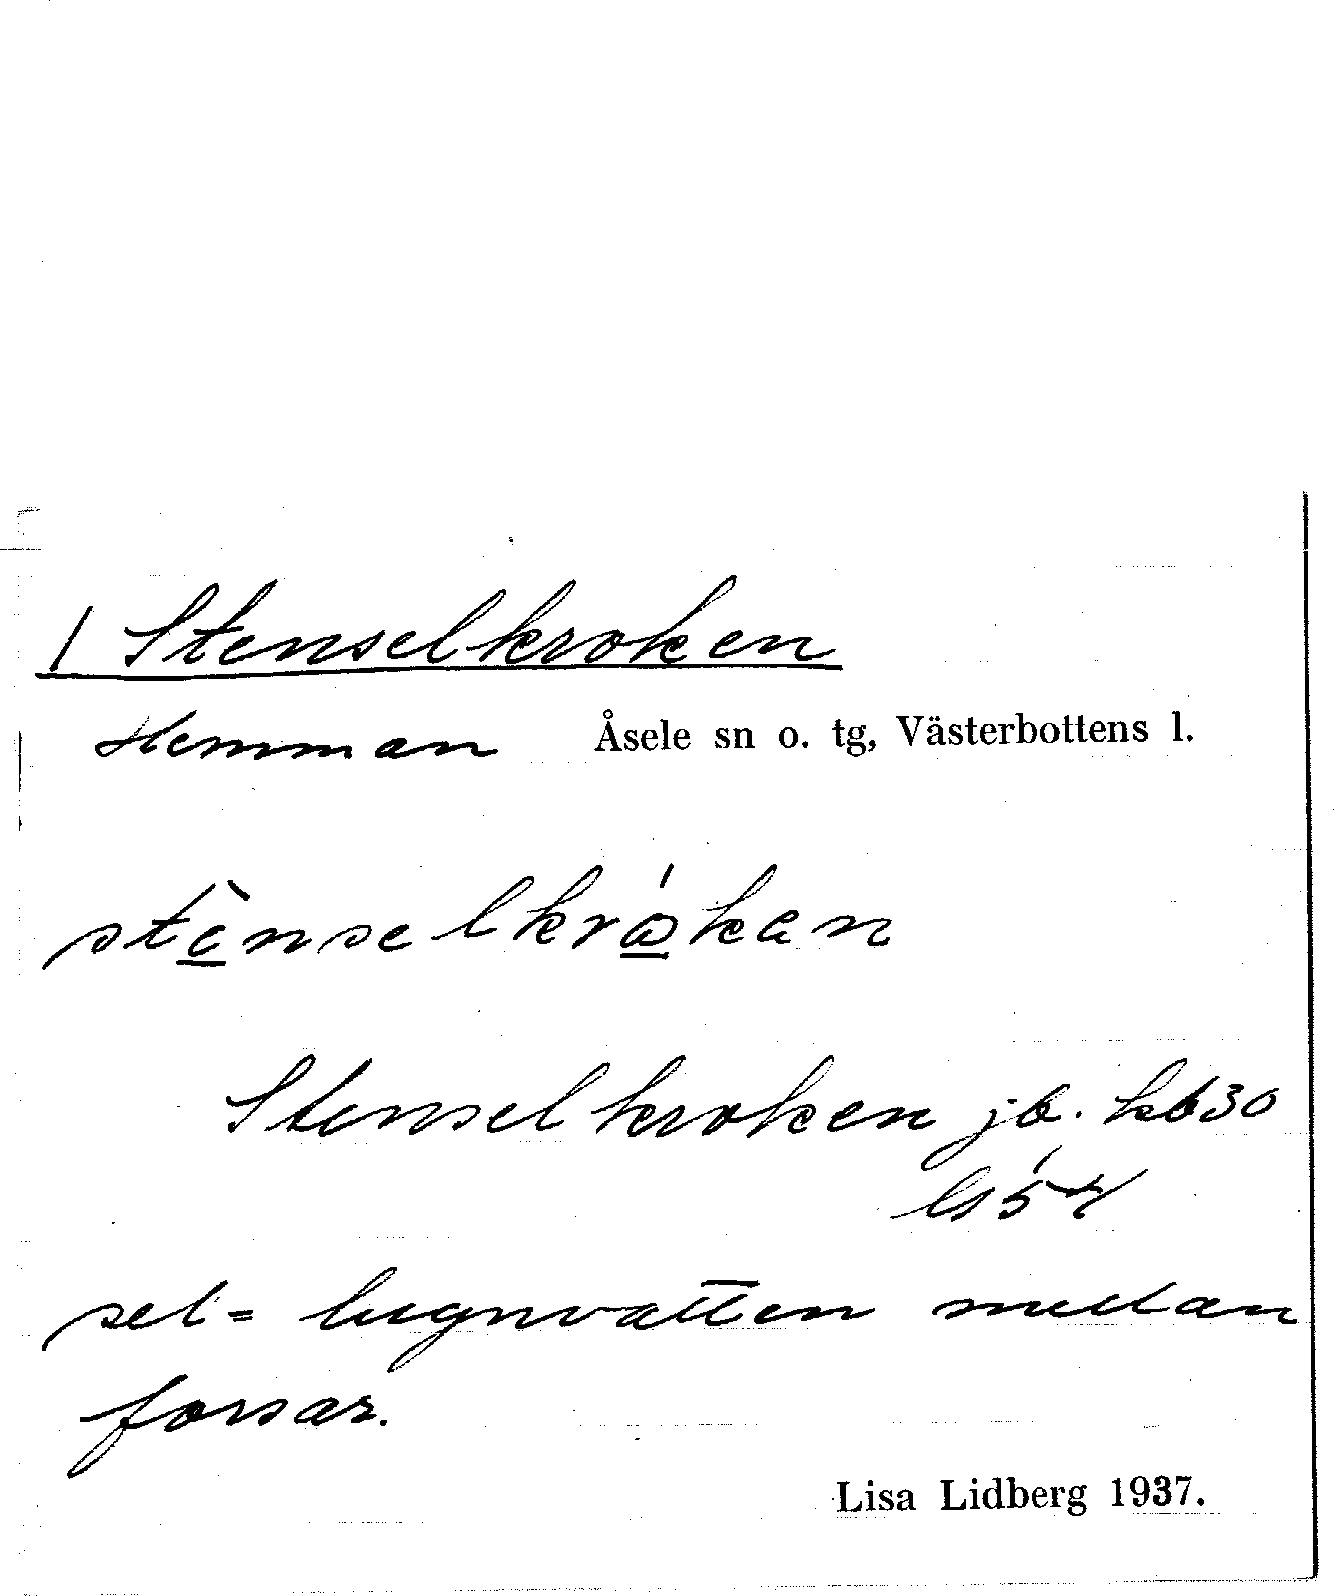 1 Stenselkroken
Hemman Åsele sn o. tg, Västerbottens l.
Stenselkroken jb. kb30
sel = lugnvatten mellan
forsar.
Lisa Lidberg 1937.